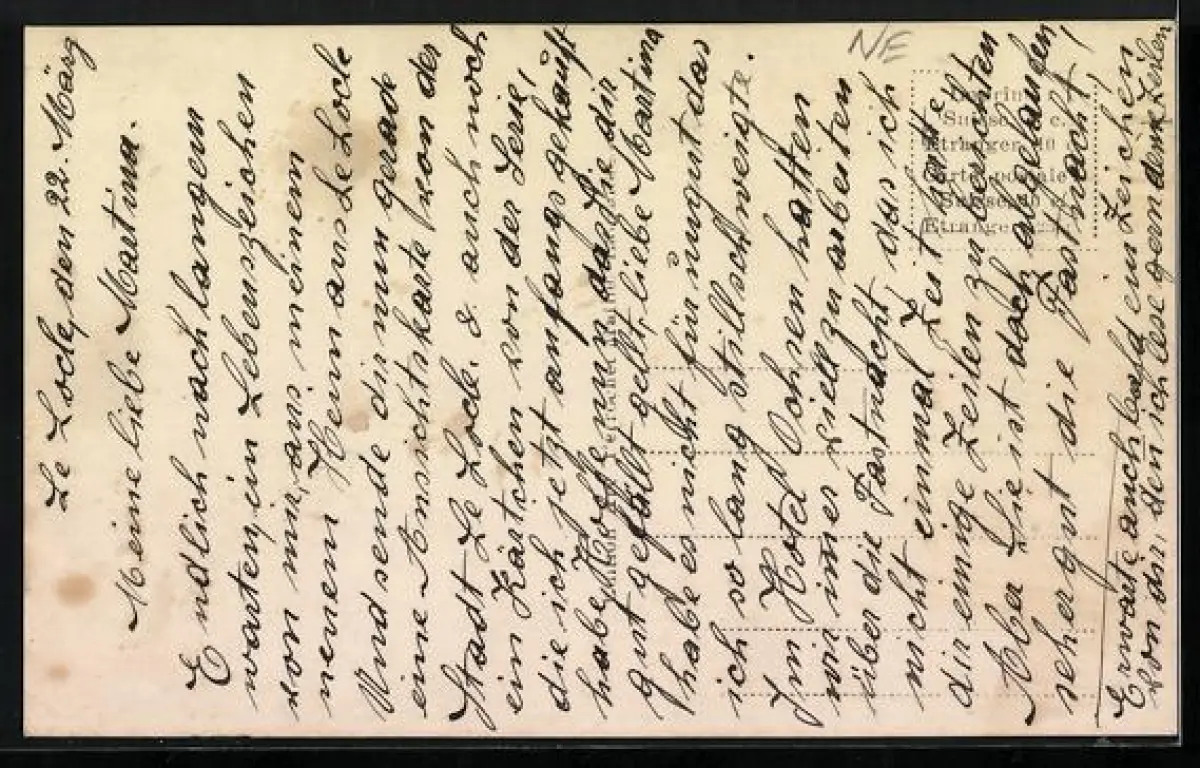 Le Locle, den 22. Märg
Meine liebe Martina.
Endlich nach langem
warten, ein Lebenszeichen
von mir, aus meinem
neuem Heim aus Le Locle
Und sende dir nun gerade
eine Ansichtskarte von der
Stadt Le Locle. & auch noch
ein Kärtchen von der Serie,
die ich jetzt anfangs gekauft
habe. Hoffe nun das sie dir
gut gefällt gell, liebe Martina
habe es nicht für ungut das
ich so lang stillschweigte.
Im Hotel Ochsen hatten
wir immer viell zu arbeiten
über die Fastnacht, das ich
nicht einmal Zeit hatte
dir einige Zeilen zu berichten
Aber Sie ist doch abgelaufen,
sehr gut die Fastnacht,
Erwarte auch bald ein Zeichen
von dir, den ich lese gern deine Zeilen
NE
Suisse
Etranger 10 c.
Carte postale
Suisse 10 c.
Etranger